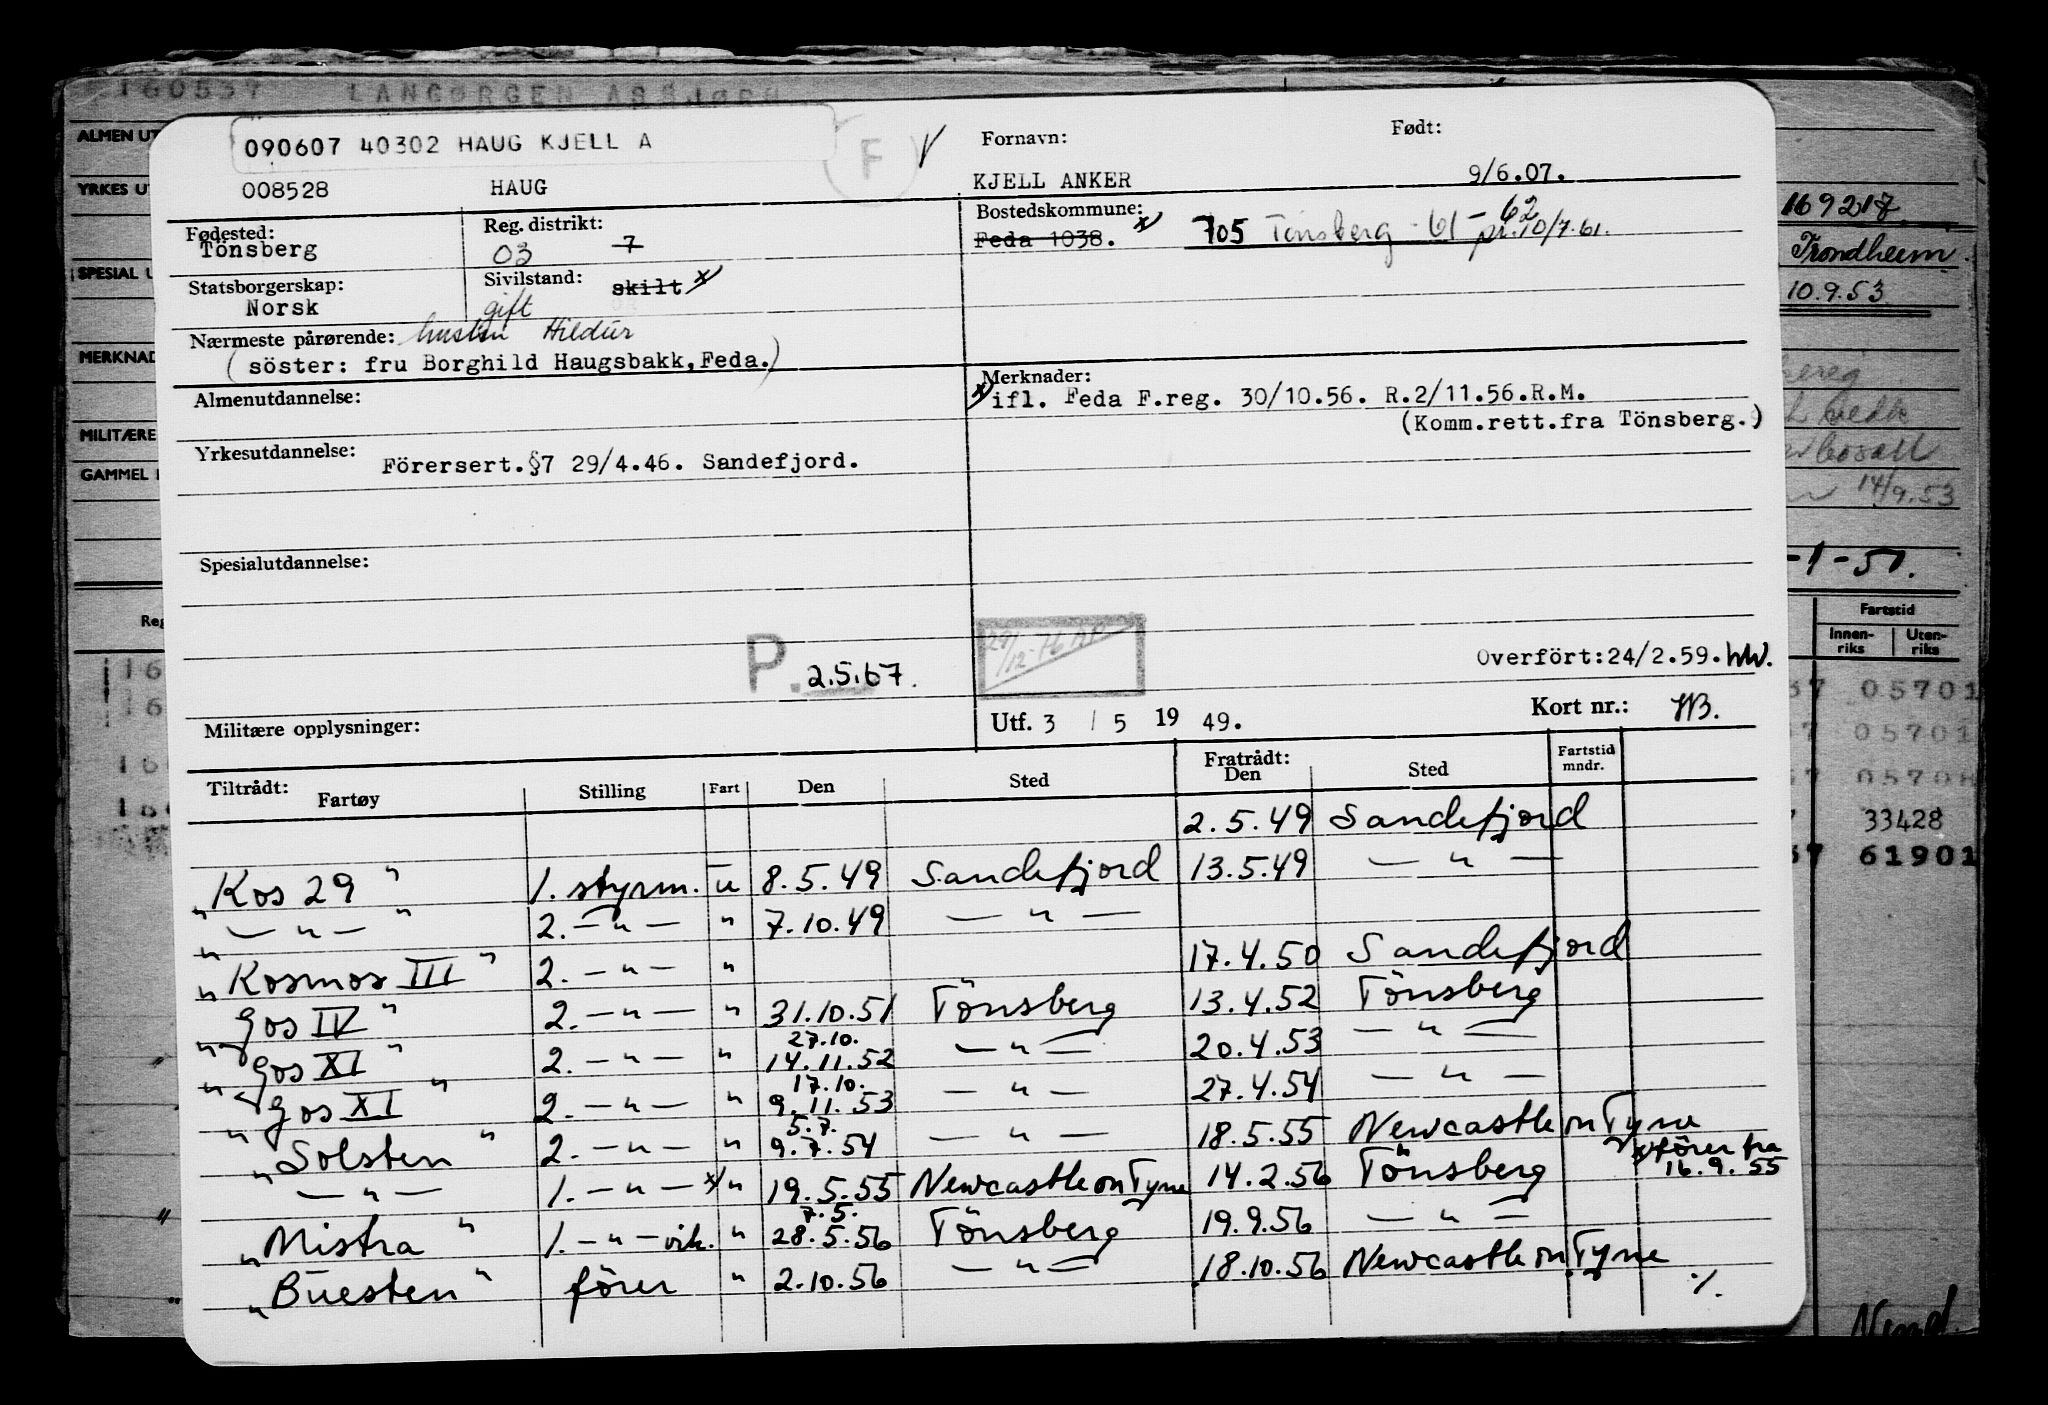 160537 LANGØRGEN ASBJØRN
ALMEN UT
YRKES UT
SPESIAL U
MERKNAD
MILITÆRE
GAMMEL
090607 40302 HAUG KJELL A
F
Fornavn:
Født:
008528 HAUG KJELL ANKER 9/6.07.
Fødested:
Tönsberg
Reg. distrikt:
03 7
Bostedskommune:
Feda 1038. x 705 Tönsberg - 61 - 62 pr. 10/7-61.
Statsborgerskap:
Norsk
Sivilstand:
skilt x
gift
Nærmeste pårørende: hustru Hildur
(söster: fru Borghild Haugsbakk, Feda.)
Almenutdannelse:
Merknader:
x ifl. Feda F.reg. 30/10.56. R.2/11.56.R.M.
(Komm.rett.fra Tönsberg.)
Yrkesutdannelse: Förersert.§7 29/4.46. Sandefjord.
Spesialutdannelse:
P. 2.5.67.
29/12-76
Overfört:24/2.59.
Militære opplysninger:
Utf. 3 / 5 19 49.
Kort nr.:
Tiltrådt: Fartøy Stilling Fart Den Sted Fratrådt: Den Sted Fartstid mndr.
2.5.49 Sandefjord
"Kos 29" 1. styrm. u 8.5.49 Sandefjord 13.5.49 — " —
" — " — " 2. — " — " 7.10.49 — " —
"Kosmos III" 2. — " — " 17.4.50 Sandefjord
"Gos IV" 2. — " — " 31.10.51 Tönsberg 13.4.52 Tönsberg
"Gos XI" 2. — " — " 27.10. 14.11.52 — " — 20.4.53 — " —
"Gos XI" 2. — " — " 17.10. 9.11.53 — " — 27.4.54 — " —
"Solsten" 2. — " — " 5.7. 9.7.54 — " — 18.5.55 Newcastle on Tyne
— " — 1. — " — x " 19.5.55 Newcastle on Tyne 14.2.56 Tönsberg x förer fra 16.9.55
"Mistra" 1. — " — vik. " 7.5. 28.5.56 Tönsberg 19.9.56 — " —
"Buesten" förer " 2.10.56 — " — 18.10.56 Newcastle on Tyne ./.
169217
Trondheim
10.9.53
14/9.53
-1-51.
Fartstid
Innen-riks Uten-riks
05701
05701
05708
33428
61901